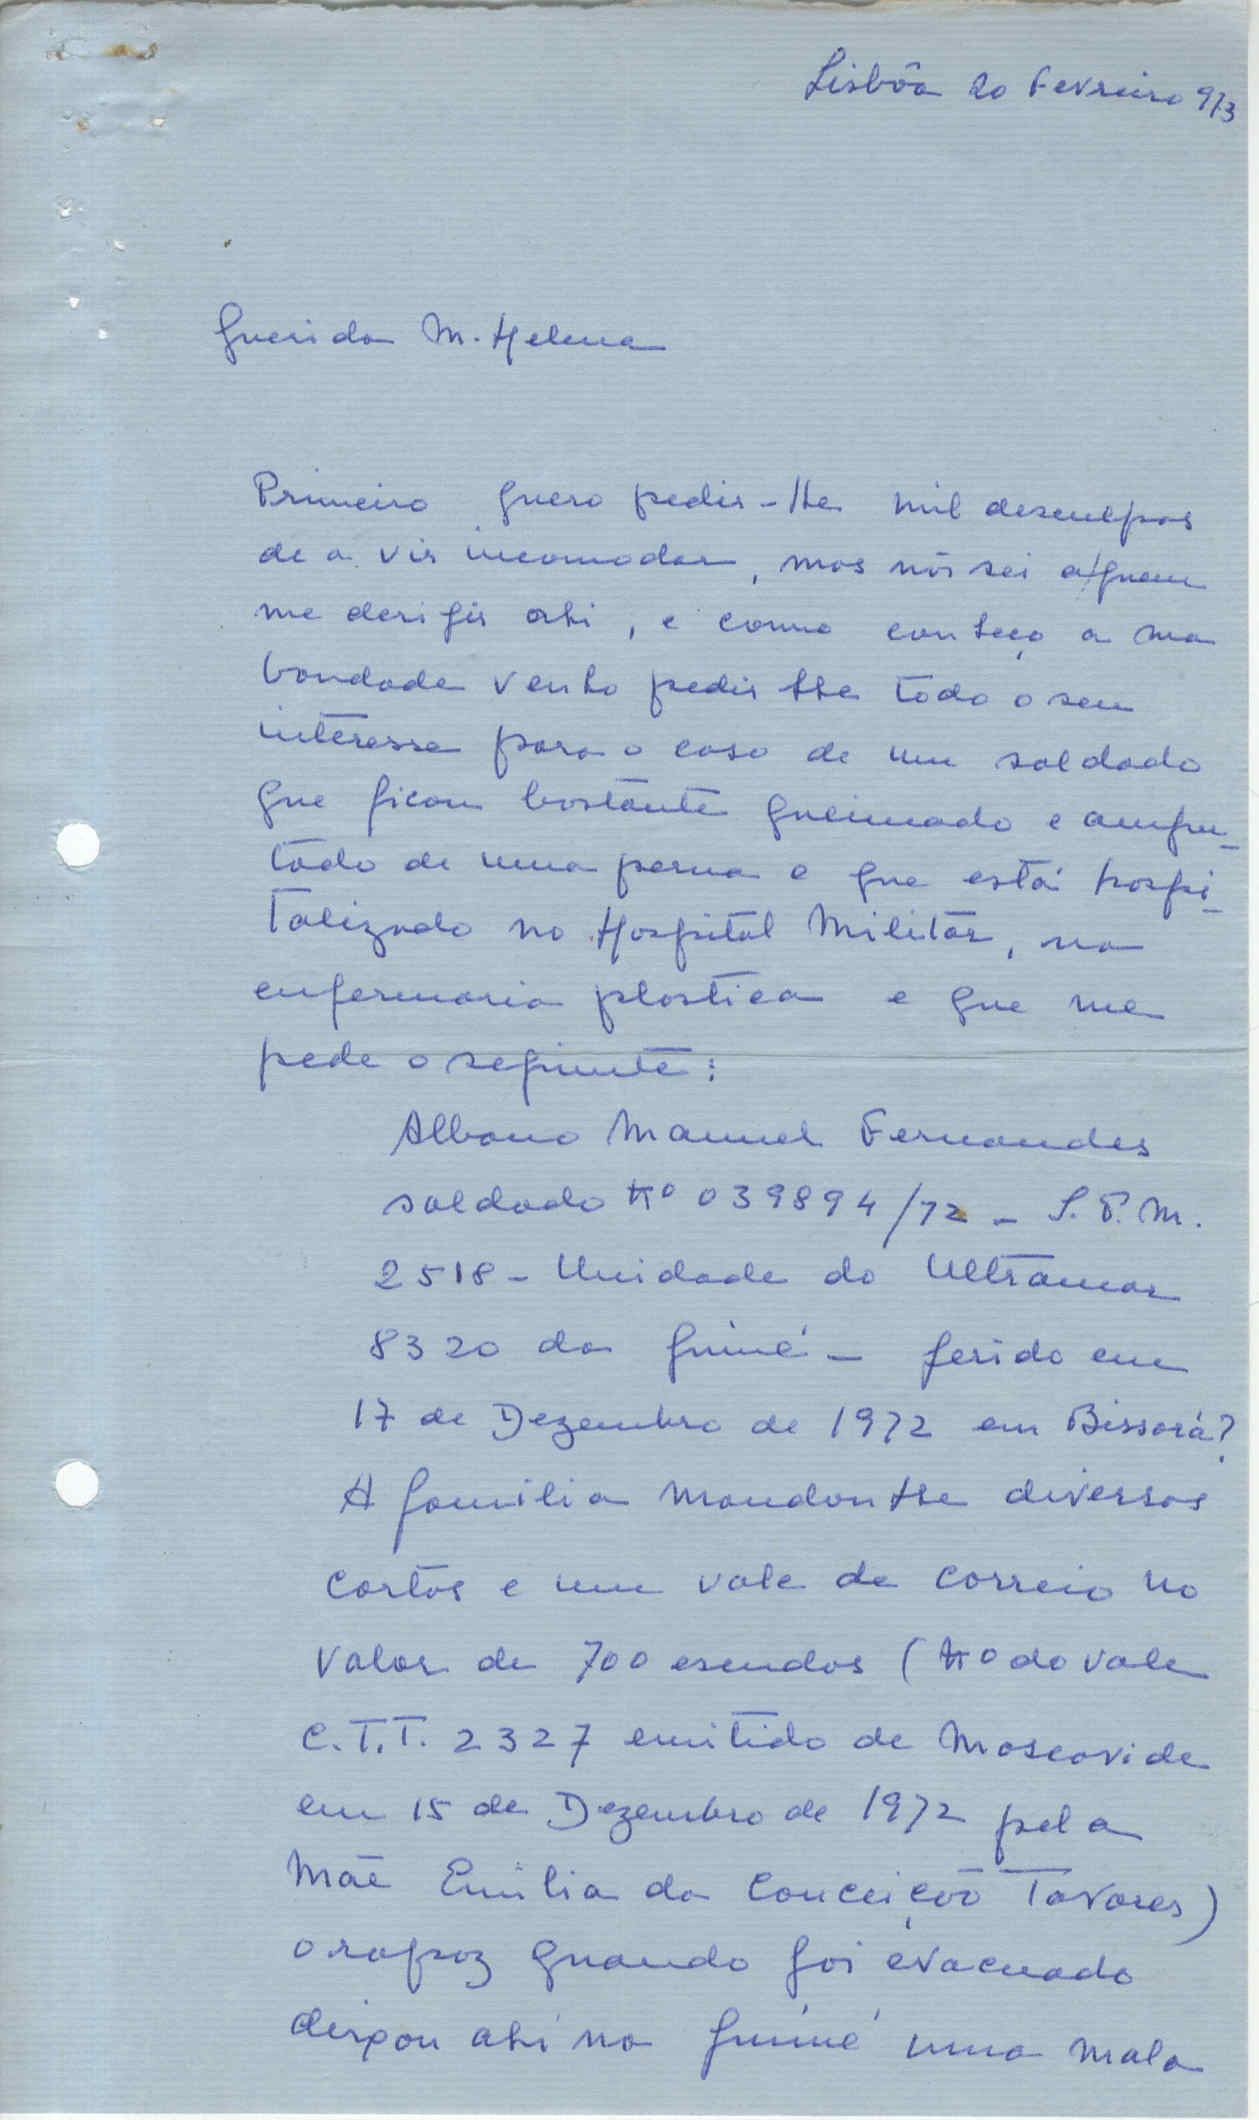 Lisbôa 20 Fevreiro 973
Querida M. Helena
Primeiro quero pedir-lhe mil desculpas
de a vir incomodar, mas não sei a quem
me derigir ahi, e como conheço a sua
bondade venho pedir lhe todo o seu
interesse para o caso de um soldado
que ficou bastante queimado e ampu-
tado de uma perna e que está hospi-
talizado no Hospital Militar, na
enfermaria plastica e que me
pede o seguinte:
Albano Manuel Fernandes
soldado Nº 039894/72 - S.P.M.
2518 - Unidade do Ultramar
8320 da Guiné - ferido em
17 de Dezembro de 1972 em Bissorá?
A familia mandou lhe diversas
cartas e um vale de correio no
valor de 700 escudos (Nº do vale
C.T.T. 2327 emitido de Moscavide
em 15 de Dezembro de 1972 pela
Mãe Emilia da Conceição Tavares)
o rapaz quando foi evacuado
deixou ahi na Guiné uma mala